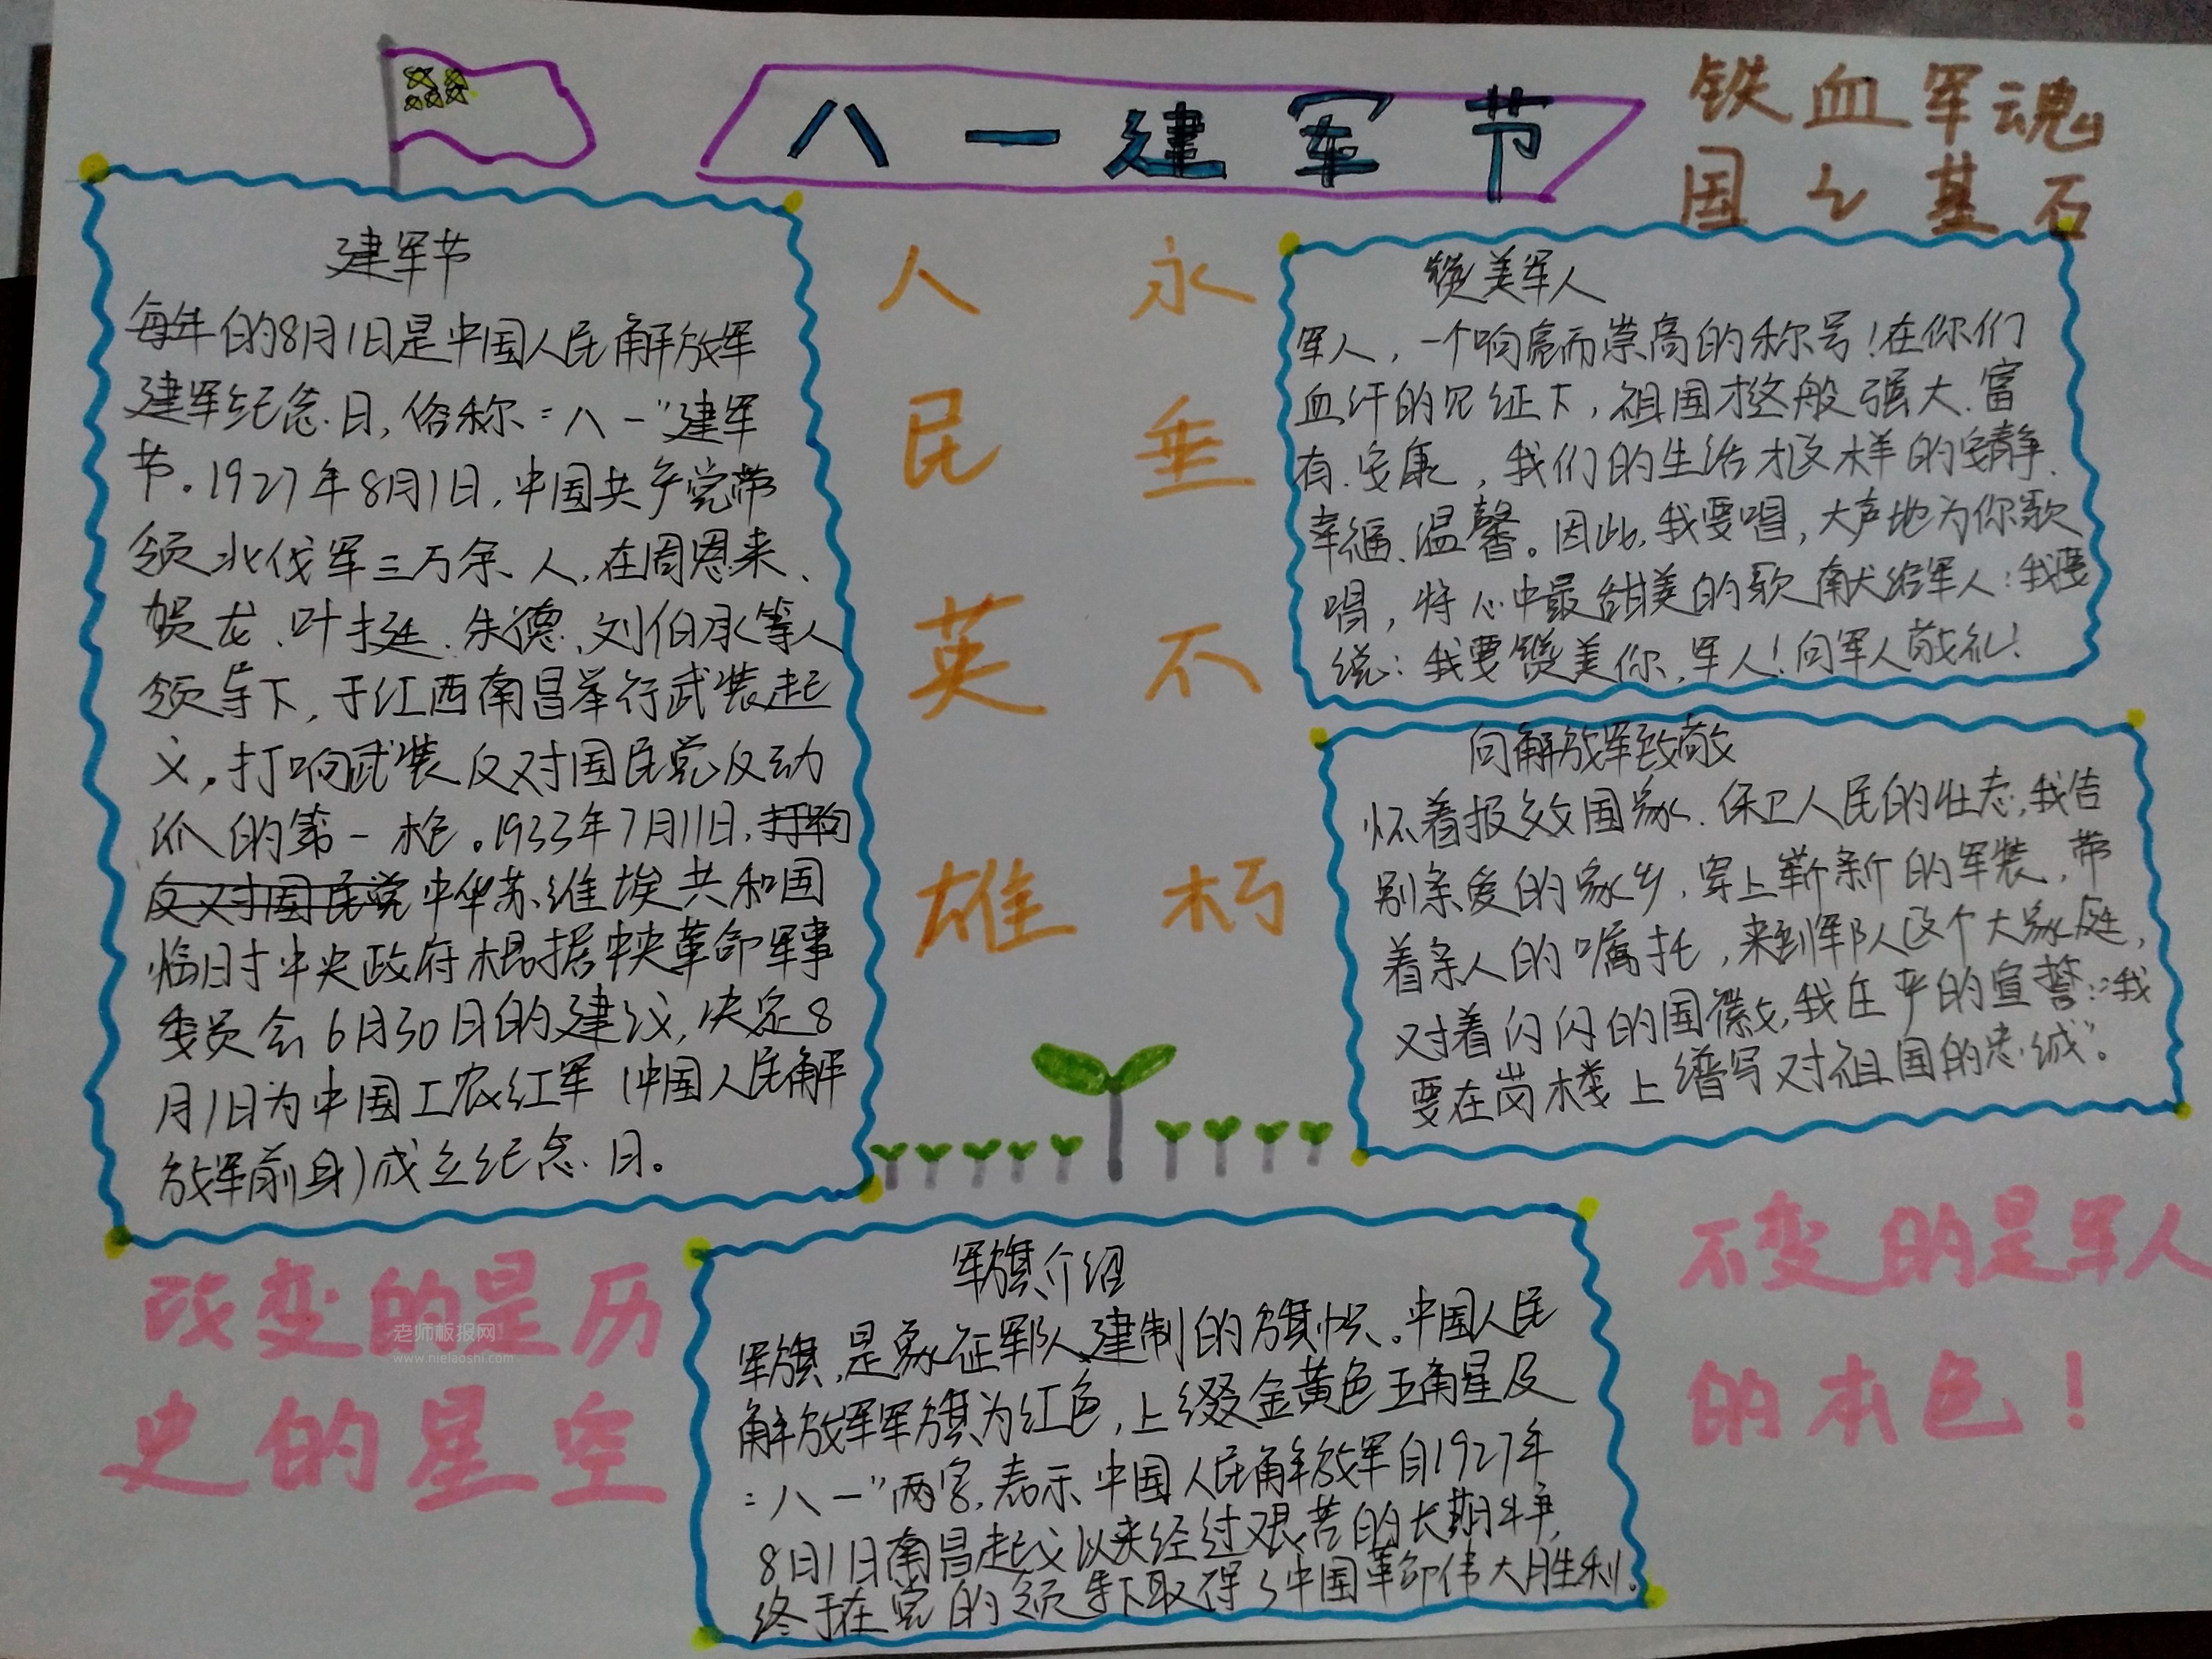 八一建军节
铁血军魂
国之基石
建军节
每年的8月1日是中国人民解放军
建军纪念日,俗称“八一”建军
节。1927年8月1日,中国共产党带
领北伐军三万余人,在周恩来、
贺龙、叶挺、朱德、刘伯承等人
领导下,于江西南昌举行武装起
义,打响武装反对国民党反动
派的第一枪。1933年7月11日,打响
反对国民党中华苏维埃共和国
临时中央政府根据中央革命军事
委员会6月30日的建议,决定8
月1日为中国工农红军(中国人民解
放军前身)成立纪念日。
人民英雄
永垂不朽
赞美军人
军人,一个响亮而崇高的称号!在你们
血汗的见证下,祖国才这般强大、富
有、安康,我们的生活才这样的安静、
幸福、温馨。因此,我要唱,大声地为你歌
唱,将心中最甜美的歌献给军人:我要
说:我要赞美你,军人!向军人敬礼!
向解放军致敬
怀着报效国家、保卫人民的壮志,我告
别亲爱的家乡,穿上崭新的军装,带
着亲人的嘱托,来到军队这个大家庭,
对着闪闪的国徽,我庄严的宣誓:“我
要在岗楼上谱写对祖国的忠诚”。
改变的是历
史的星空
老师板报网
www.nielaoshi.com
军旗介绍
军旗,是象征军队建制的旗帜。中国人民
解放军军旗为红色,上缀金黄色五角星及
“八一”两字,表示中国人民解放军自1927年
8月1日南昌起义以来经过艰苦的长期斗争,
终于在党的领导下取得了中国革命伟大胜利。
不变的是军人
的本色!